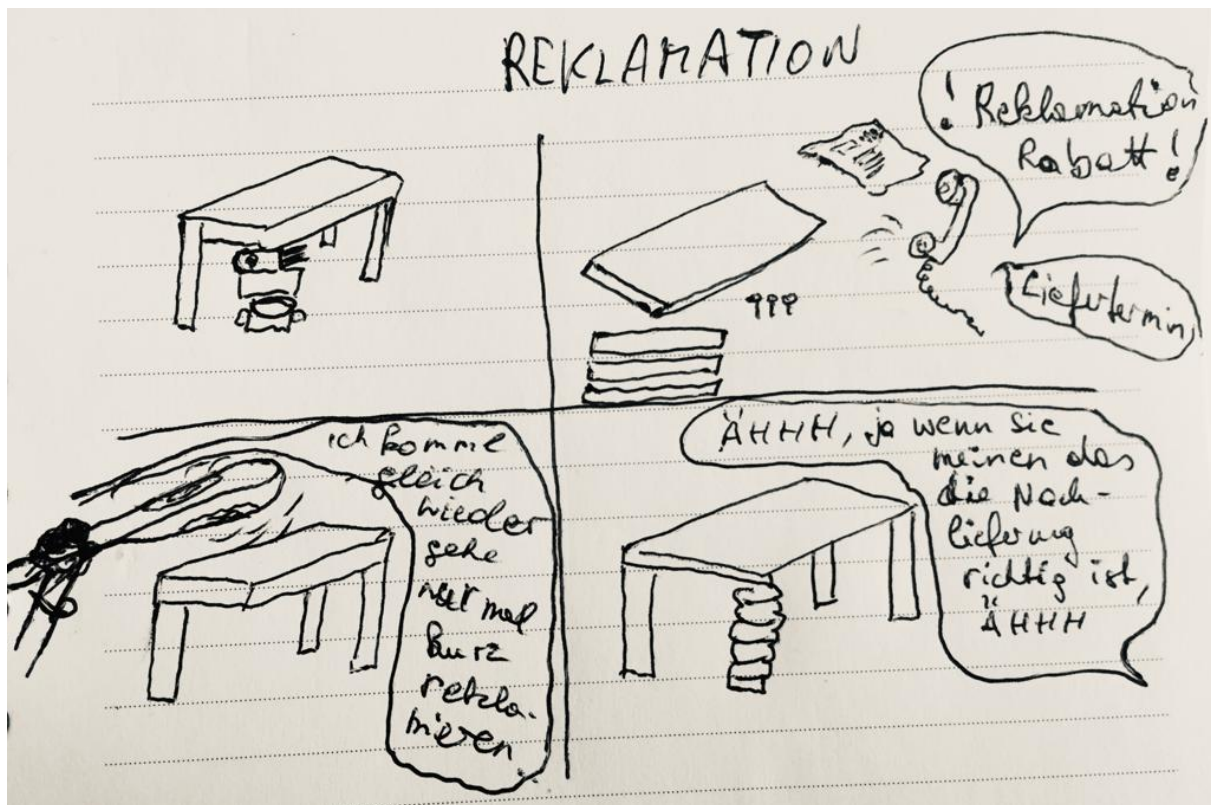 REKLAMATION
! Reklamation
Rabatt!
Liefertermin
ich komme
gleich
wieder
gehe
nur mal
kurz
rekla-
mieren
ÄHHH, ja wenn sie
meinen das
die Nach-
lieferung
richtig ist,
ÄHHH